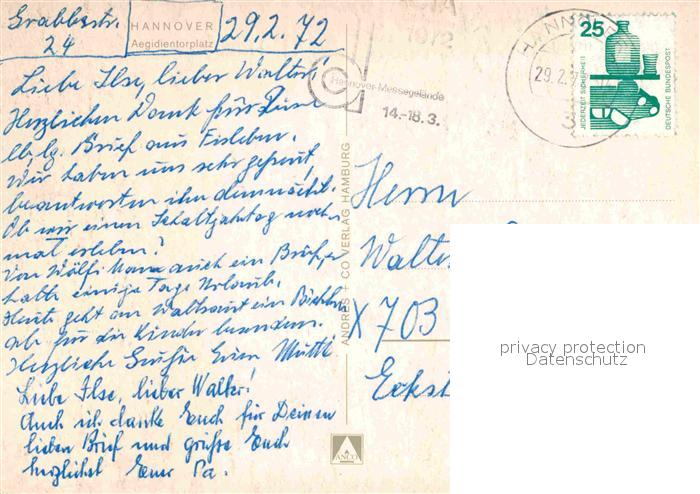 Grabbestr.
24
HANNOVER
Aegidientorplatz
29.2.72
Liebe Ilse, lieber Walter!
Herzlichen Dank für Eure
lb, lg. Brief aus Eisleben.
Wir haben uns sehr gefreut,
beantworten ihn demnächst.
Ob wir einen Schaltjahrtag noch
mal erleben?
Von Wölfi kam auch ein Brief, er
hatte einige Tage Urlaub.
Heute geht an Waltraut ein
ab für die Kinder besonders.
Herzliche Grüße Eure Mutti
Liebe Ilse, lieber Walter!
Auch ich danke Euch für Deinen
lieben Brief und grüße Euch
herzlichst Euer Pa.
Hannover-Messegelände
14.-18.3.
HANNOVER
29.2.
25
JEDERZEIT SICHERHEIT
DEUTSCHE BUNDESPOST
ANDRES + CO VERLAG HAMBURG
ANCO
Herrn
Walter
X 703
privacy protection
Datenschutz